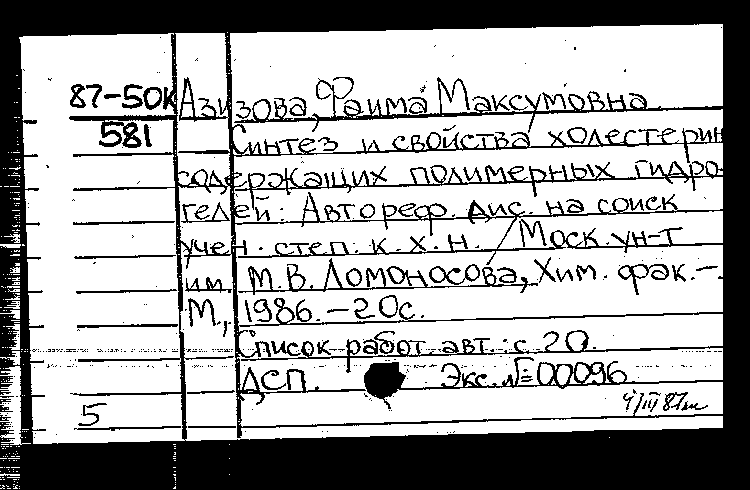 87-50К Азизова, Фаима Максумовна.
581 Синтез и свойства холестерин
содержащих полимерных гидро-
гелей: Автореф. дис. на соиск
учен. степ. к. х. н. / Моск. ун-т
им. М. В. Ломоносова, Хим. фак. -.
М., 1986. - 20с.
Список работ авт.: с. 20.
ДСП. Экс. №=00096
5 4/III 87